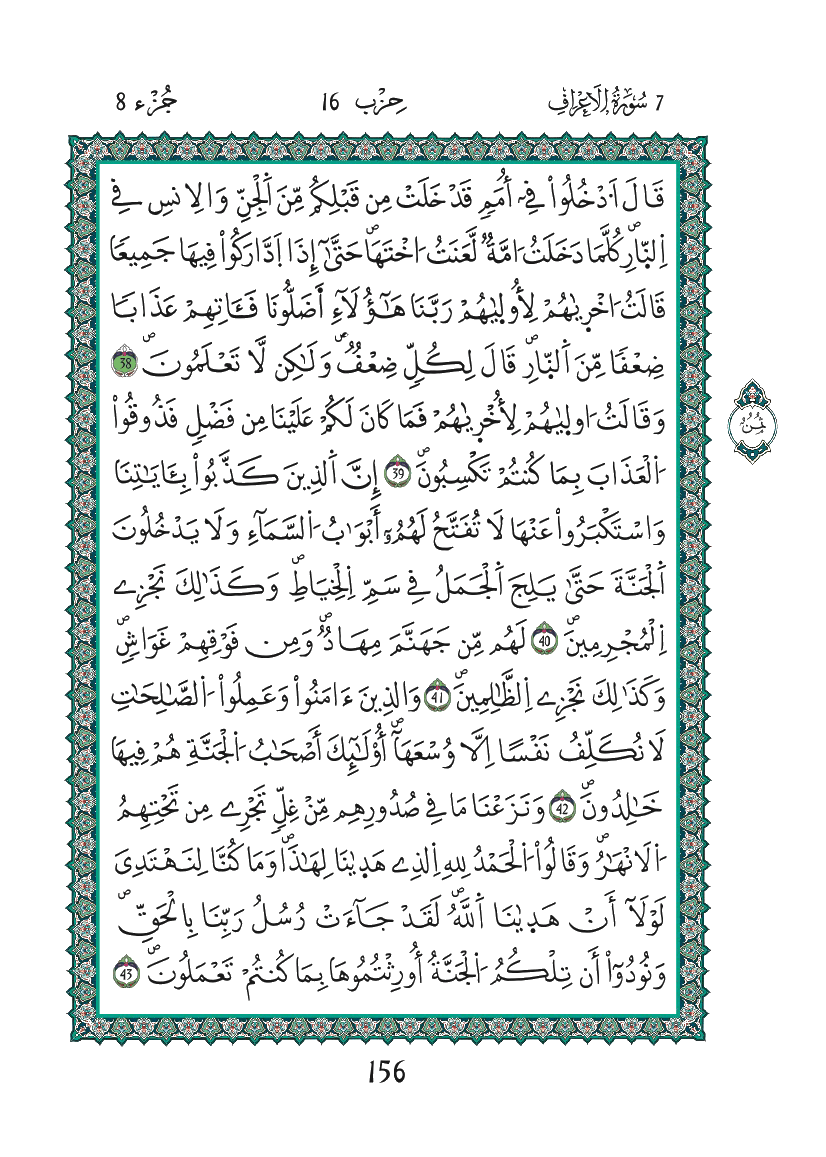 7 سُورَةُ الَاعْرَافِ حِزْب 16 جُزْء 8
قَالَ اَدْخُلُواْ فِےٓ أُمَمٖ قَدْ خَلَتْ مِن قَبْلِكُم مِّنَ اَلْجِنِّ وَالِانسِ فِے
اِلنّ۪ارِۖ كُلَّمَا دَخَلَتُ اُمَّةٞ لَّعَنَتُ اخْتَهَاۖ حَتَّىٰٓ إِذَا اَ۪دَّارَكُواْ فِيهَا جَمِيعاٗ
قَالَتُ اخْر۪يٰهُمْ لِأُول۪يٰهُمْ رَبَّنَا هَٰٓؤُلَآءِ اَضَلُّونَا فَـَٔاتِهِمْ عَذَاباٗ
ضِعْفاٗ مِّنَ اَلنّ۪ارِۖ قَالَ لِكُلّٖ ضِعْفٞۖ وَلَٰكِن لَّا تَعْلَمُونَۖ 38
وَقَالَتُ اول۪يٰهُمْ لِأُخْر۪يٰهُمْ فَمَا كَانَ لَكُمْ عَلَيْنَا مِن فَضْلٖ فَذُوقُواْ
ثُمُن
اُلْعَذَابَ بِمَا كُنتُمْ تَكْسِبُونَۖ 39 إِنَّ اَلذِينَ كَذَّبُواْ بِـَٔايَٰتِنَا
وَاسْتَكْبَرُواْ عَنْهَا لَا تُفَتَّحُ لَهُمُۥٓ أَبْوَٰبُ اُلسَّمَآءِ وَلَا يَدْخُلُونَ
اَلْجَنَّةَ حَتَّىٰ يَلِجَ اَلْجَمَلُ فِے سَمِّ اِلْخِيَاطِۖ وَكَذَٰلِكَ نَجْزِے
اِلْمُجْرِمِينَۖ 40 لَهُم مِّن جَهَنَّمَ مِهَادٞۖ وَمِن فَوْقِهِمْ غَوَاشٖۖ
وَكَذَٰلِكَ نَجْزِے اِلظَّٰلِمِينَۖ 41 وَالذِينَ ءَامَنُواْ وَعَمِلُواْ اُلصَّٰلِحَٰتِ
لَا نُكَلِّفُ نَفْساً اِلَّا وُسْعَهَآۖ أُوْلَٰٓئِكَ أَصْحَٰبُ اُلْجَنَّةِ هُمْ فِيهَا
خَٰلِدُونَۖ 42 وَنَزَعْنَا مَا فِے صُدُورِهِم مِّنْ غِلّٖ تَجْرِے مِن تَحْتِهِمُ
اُلَانْهَٰرُۖ وَقَالُواْ اُلْحَمْدُ لِلهِ اِلذِے هَد۪يٰنَا لِهَٰذَاۖ وَمَا كُنَّا لِنَهْتَدِيَ
لَوْلَآ أَنْ هَد۪يٰنَا اَللَّهُۖ لَقَدْ جَآءَتْ رُسُلُ رَبِّنَا بِالْحَقِّۖ
وَنُودُوٓاْ أَن تِلْكُمُ اُلْجَنَّةُ أُورِثْتُمُوهَا بِمَا كُنتُمْ تَعْمَلُونَۖ 43
156